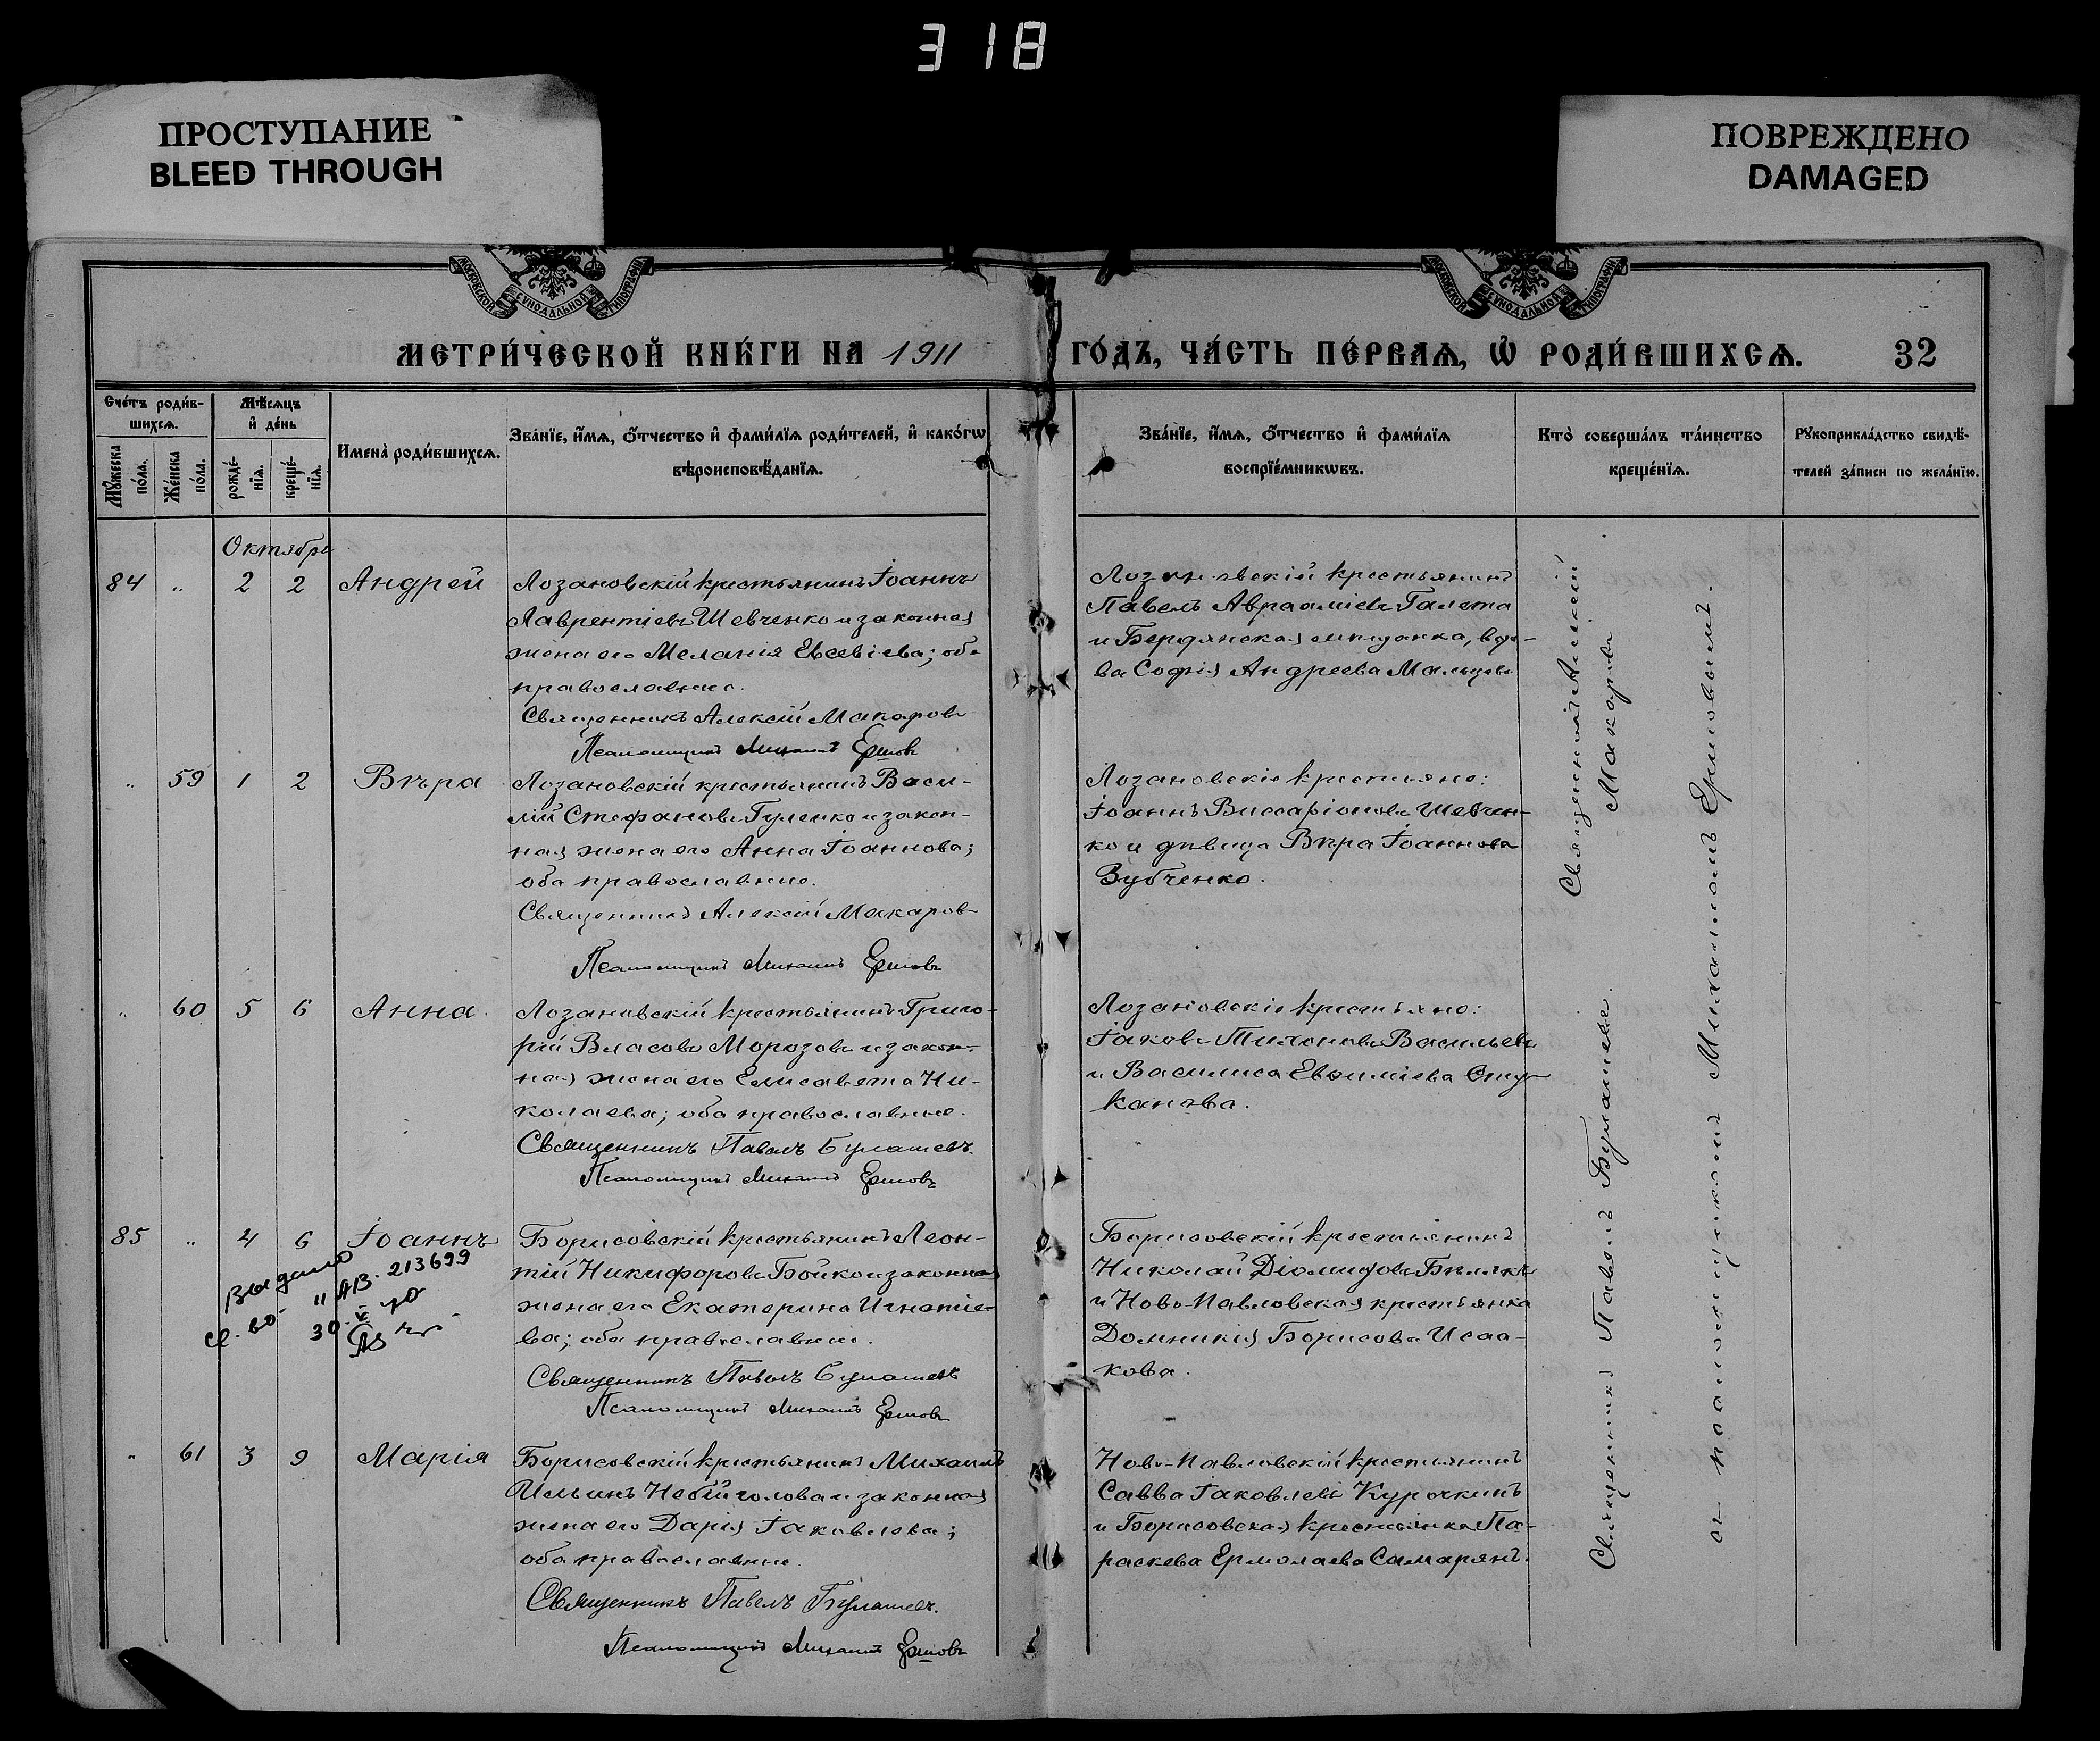 318
ПРОСТУПАНИЕ
BLEED THROUGH
ПОВРЕЖДЕНО
DAMAGED
МОСКОВСКОЙ СѴНОДАЛЬНОЙ ТИПОГРАФІИ
МОСКОВСКОЙ СѴНОДАЛЬНОЙ ТИПОГРАФІИ
МЕТРИ́ЧЕСКОЙ КНИ́ГИ НА 1911 ГО́ДЪ, ЧА́СТЬ ПЕ́РВАѦ, Ѽ РОДИ́ВШИХСѦ. 32
Сче́тъ роди́в-
шихсѧ.
Мꙋ́жеска по́ла.
Же́нска по́ла.
Мѣ́сѧцъ
и҆ де́нь
рожде́-
нїѧ.
креще́-
нїѧ.
Имена̀ роди́вшихсѧ.
Зва́нїе, и҆́мѧ, ѻ҆́тчество и҆ фами́лїѧ роди́телей, и҆ како́гѡ
вѣроисповѣ́данїѧ.
Зва́нїе, и҆́мѧ, ѻ҆́тчество и҆ фами́лїѧ
воспрїе́мникѡвъ.
Кто̀ соверша́лъ та́инство
креще́нїѧ.
Рꙋкоприкла́дство свидѣ́-
телей за́писи по жела́нїю.
Октября
84 „ 2 2 Андрей
Лозановскій крестьянинъ Іоаннъ
Лаврентіевъ Шевченко и законная
жена его Меланія Евсевіева; оба
православные.
Священникъ Алексій Макаровъ
Псаломщикъ Михаилъ Ершовъ
Лозановскій крестьянинъ
Павелъ Авраамiевъ Галета
и Бердянская мѣщанка, вдо-
ва Софія Андреева Мальцева
„ 59 1 2 Вѣра
Лозановскій крестьянинъ Васи-
лій Стефановъ Гуленко и закон-
ная жена его Анна Іоаннова;
оба православные.
Священникъ Алексій Макаровъ
Псаломщикъ Михаилъ Ершовъ
Лозановскіе крестьяне:
Іоаннъ Виссаріоновъ Шевчен-
ко и дѣвица Вѣра Іоаннова
Зубченко.
Священникъ Алексій
Макаровъ
„ 60 5 6 Анна.
Лозановскій крестьянинъ Григо-
рій Власовъ Морозовъ и закон-
ная жена его Елисавета Ни-
колаева; оба православные.
Священникъ Павелъ Булашевъ.
Псаломщикъ Михаилъ Ершовъ
Лозановскіе крестьяне:
Іаковъ Тихоновъ Васильевъ
и Василиса Евѳиміева Сту-
канова.
85 „ 4 6 Іоаннъ
Выдано
св. во "АВ. 213699
30.
Борисовскій крестьянинъ Леон-
тій Никифоровъ Бойко и законная
жена его Екатерина Игнатіе-
ва; оба православные.
Священникъ Павелъ Булашевъ
Псаломщикъ Михаилъ Ершовъ
Борисовскій крестьянинъ
Николай Діомидовъ Бѣликъ
и Ново-Павловская крестьянка
Домникія Борисова Исаа-
кова.
„ 61 3 9 Марія
Борисовскій крестьянинъ Михаилъ
Ильинъ Небійголова и законная
жена его Дарія Іаковлева;
оба православные.
Священникъ Павелъ Булашевъ.
Псаломщикъ Михаилъ Ершовъ
Ново-Павловскій крестьянинъ
Савва Іаковлевъ Курочкинъ
и Борисовская крестьянка Па-
раскева Ермолаева Самарянъ.
Священникъ Павелъ Булашевъ.
съ псаломщикомъ Михаиломъ Ершовымъ.